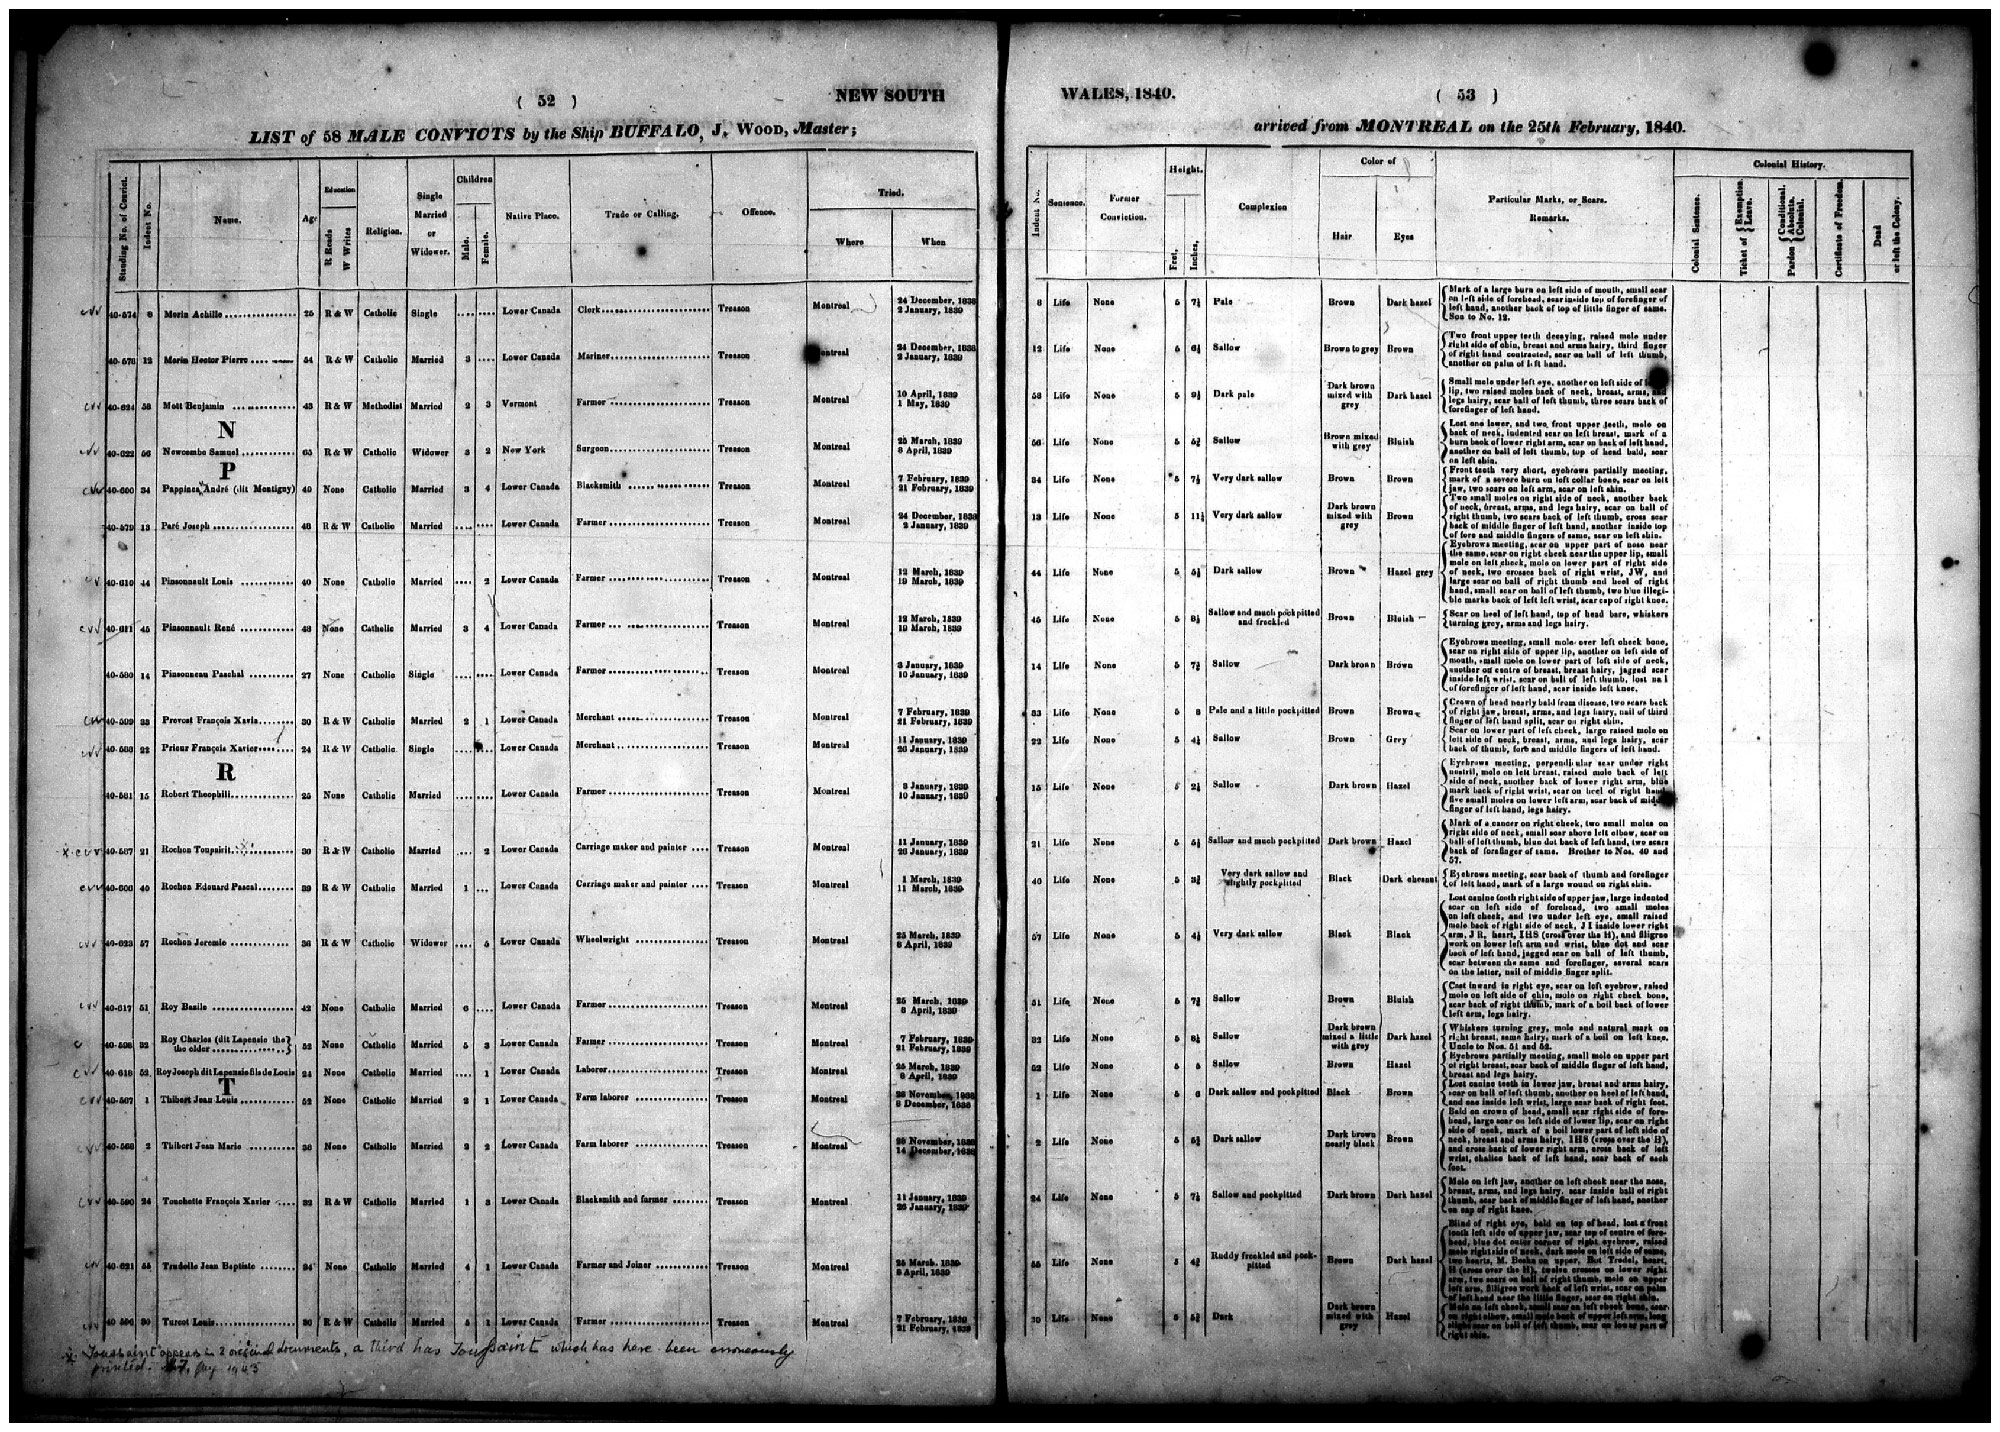 ( 52 ) NEW SOUTH
LIST of 58 MALE CONVICTS by the Ship BUFFALO, J. WOOD, Master;
Standing No. of Convict. Indent No. Name. Age Education R Reads W Writes Religion. Single Married or Widower. Children Male. Female. Native Place. Trade or Calling. Offence. Tried. Where When
40-574 8 Morin Achille 25 R & W Catholic Single Lower Canada Clerk Treason Montreal 24 December, 1838 2 January, 1839
40-578 12 Morin Hector Pierre 54 R & W Catholic Married 3 Lower Canada Mariner Treason Montreal 24 December, 1838 2 January, 1839
40-624 58 Mott Benjamin 43 R & W Methodist Married 2 3 Vermont Farmer Treason Montreal 10 April, 1839 1 May, 1839
N
40-622 56 Newcombe Samuel 65 R & W Catholic Widower 3 2 New York Surgeon Treason Montreal 25 March, 1839 8 April, 1839
P
40-600 34 Pappinea André (dit Montigny) 40 None Catholic Married 3 4 Lower Canada Blacksmith Treason Montreal 7 February, 1839 21 February, 1839
40-579 13 Paré Joseph 48 R & W Catholic Married Lower Canada Farmer Treason Montreal 24 December, 1838 2 January, 1839
40-610 44 Pinsonnault Louis 40 None Catholic Married 2 Lower Canada Farmer Treason Montreal 12 March, 1839 19 March, 1839
40-611 45 Pinsonnault René 48 None Catholic Married 3 4 Lower Canada Farmer Treason Montreal 12 March, 1839 19 March, 1839
40-580 14 Pinsonneau Paschal 27 None Catholic Single Lower Canada Farmer Treason Montreal 3 January, 1839 10 January, 1839
40-599 33 Provost François Xavia 30 R & W Catholic Married 2 1 Lower Canada Merchant Treason Montreal 7 February, 1839 21 February, 1839
40-588 22 Prieur François Xavier 24 R & W Catholic Single Lower Canada Merchant Treason Montreal 11 January, 1839 26 January, 1839
R
40-581 15 Robert Theophili 25 None Catholic Married Lower Canada Farmer Treason Montreal 3 January, 1839 10 January, 1839
x 40-587 21 Rochon Toupairit 30 R & W Catholic Married 2 Lower Canada Carriage maker and painter Treason Montreal 11 January, 1839 26 January, 1839
40-606 40 Rochon Edouard Pascal 39 R & W Catholic Married 1 Lower Canada Carriage maker and painter Treason Montreal 1 March, 1839 11 March, 1839
40-623 57 Rochon Jeremie 36 R & W Catholic Widower 5 Lower Canada Wheelwright Treason Montreal 25 March, 1839 8 April, 1839
40-617 51 Roy Basile 42 None Catholic Married 6 Lower Canada Farmer Treason Montreal 25 March, 1839 8 April, 1839
40-598 32 Roy Charles (dit Lapensie the the older 52 None Catholic Married 5 3 Lower Canada Farmer Treason Montreal 7 February, 1839 21 February, 1839
40-618 52 Roy Joseph dit Lapensie fils de Louis 24 None Catholic Married 1 Lower Canada Laborer Treason Montreal 25 March, 1839 8 April, 1839
T
40-567 1 Thibert Jean Louis 52 None Catholic Married 2 1 Lower Canada Farm laborer Treason Montreal 28 November, 1838 8 December, 1838
40-568 2 Thibert Jean Marie 38 None Catholic Married 2 2 Lower Canada Farm laborer Treason Montreal November, 1838 14 December, 1838
40-590 24 Touchette François Xavier 32 R & W Catholic Married 1 3 Lower Canada Blacksmith and farmer Treason Montreal 11 January, 1839 26 January, 1839
40-621 55 Trudelle Jean Baptiste 34 None Catholic Married 4 1 Lower Canada Farmer and Joiner Treason Montreal 25 March, 1839 8 April, 1839
40-596 30 Turcot Louis 36 R & W Catholic Married 5 1 Lower Canada Farmer Treason Montreal 7 February, 1839 21 February, 1839
x Toussaint appears in 2 original documents, a third has Toufsaint which has here been erroneously
printed.
WALES, 1840. ( 53 )
arrived from MONTREAL on the 25th February, 1840.
Indent No. Sentence. Former Conviction. Height. Feet, Inches, Complexion Color of Hair Eyes Particular Marks, or Scars. Remarks. Colonial History. Colonial Sentence. Ticket of { Exemption Leave. Pardon { Conditional Absolute. Colonial. Certificate of Freedom. Dead or left the Colony.
8 Life None 5 7½ Pale Brown Dark hazel Mark of a large burn on left side of mouth, small scar
on left side of forehead, scar inside top of forefinger of
left hand, another back of top of little finger of same.
Son to No. 12.
12 Life None 5 6½ Sallow Brown to grey Brown Two front upper teeth decaying, raised mole under
right side of chin, breast and arms hairy, third finger
of right hand contracted, scar on ball of left thumb,
another on palm of left hand.
58 Life None 5 9½ Dark pale Dark brown mixed with grey Dark hazel Small mole under left eye, another on left side of
lip, two raised moles back of neck, breast, arms, and
legs hairy, scar ball of left thumb, three scars back of
forefinger of left hand.
56 Life None 5 5¾ Sallow Brown mixed with grey Bluish Lost one lower, and two front upper teeth, mole on
back of neck, indented scar on left breast, mark of a
burn back of lower right arm, scar on back of left hand,
another on ball of left thumb, top of head bald, scar
on left shin.
34 Life None 5 7½ Very dark sallow Brown Brown Front teeth very short, eyebrows partially meeting,
mark of a severe burn on left collar bone, scar on left
jaw, two scars on left arm, scar on left shin.
13 Life None 5 11½ Very dark sallow Dark brown mixed with grey Brown Two small moles on right side of neck, another back
of neck, breast, arms, and legs hairy, scar on ball of
right thumb, two scars back of left thumb, cross scar
back of middle finger of left hand, another inside top
of fore and middle fingers of same, scar on left shin.
44 Life None 5 5½ Dark sallow Brown Hazel grey Eyebrows meeting, scar on upper part of nose near
the same, scar on right cheek near the upper lip, small
mole on left cheek, mole on lower part of right side
of neck, two crosses back of right wrist, JW, and
large scar on ball of right thumb and heel of right
hand, small scar on ball of left thumb, two blue illegi-
ble marks back of left left wrist, scar cap of right knee.
45 Life None 5 9½ Sallow and much pockpitted and freckled Brown Bluish Scar on heel of left hand, top of head bare, whiskers
turning grey, arms and legs hairy.
14 Life None 5 7¾ Sallow Dark brown Brown Eyebrows meeting, small mole over left cheek bone,
scar on right side of upper lip, another on left side of
mouth, small mole on lower part of left side of neck,
another on centre of breast, breast hairy, jagged scar
inside left wrist, scar on ball of left thumb, lost nail
of forefinger of left hand, scar inside left knee.
33 Life None 5 8 Pale and a little pockpitted Brown Brown Crown of head nearly bald from disease, two scars back
of right jaw, breast, arms, and legs hairy, nail of third
finger of left hand split, scar on right shin.
22 Life None 5 4½ Sallow Brown Grey Scar on lower part of left cheek, large raised mole on
left side of neck, breast, arms, and legs hairy, scar
back of thumb, fore and middle fingers of left hand.
15 Life None 5 2½ Sallow Dark brown Hazel Eyebrows meeting, perpendicular scar under right
nostril, mole on left breast, raised mole back of left
side of neck, another back of lower right arm, blue
mark back of right wrist, scar on heel of right hand,
five small moles on lower left arm, scar back of middle
finger of left hand, legs hairy.
21 Life None 5 5½ Sallow and much pockpitted Dark brown Hazel Mark of a cancer on right cheek, two small moles on
right side of neck, small scar above left elbow, scar on
ball of left thumb, blue dot back of left hand, two scars
back of forefinger of same. Brother to Nos. 40 and
57.
40 Life None 5 3¾ Very dark sallow and slightly pockpitted Black Dark chesnut Eyebrows meeting, scar back of thumb and forefinger
of left hand, mark of a large wound on right shin.
57 Life None 5 4½ Very dark sallow Black Black Lost canine tooth right side of upper jaw, large indented
scar on left side of forehead, two small moles
on left cheek, and two under left eye, small raised
mole back of right side of neck, J I inside lower right
arm, J R, heart, IHS (cross over the H), and filigree
work on lower left arm and wrist, blue dot and scar
back of left hand, jagged scar on ball of left thumb,
scar between the same and forefinger, several scars
on the latter, nail of middle finger split.
51 Life None 5 7¾ Sallow Brown Bluish Cast inward in right eye, scar on left eyebrow, raised
mole on left side of chin, mole on right cheek bone,
scar back of right thumb, mark of a boil back of lower
left arm, legs hairy.
32 Life None 5 8½ Sallow Dark brown mixed a little with grey Dark hazel Whiskers turning grey, mole and natural mark on
right breast, same hairy, mark of a boil on left knee.
Uncle to Nos. 51 and 52.
52 Life None 5 5 Sallow Brown Hazel Eyebrows partially meeting, small mole on upper part
of right breast, scar back of middle finger of left hand,
breast and legs hairy.
1 Life None 5 6 Dark sallow and pockpitted Black Brown Lost canine teeth in lower jaw, breast and arms hairy,
scar on ball of left thumb, another on heel of left hand,
and one inside left wrist, large scar back of right foot.
2 Life None 5 5¾ Dark sallow Dark brown nearly black Brown Bald on crown of head, small scar right side of fore-
head, large scar on left side of lower lip, scar on right
side of neck, mark of a boil lower part of left side of
neck, breast and arms hairy, IHS (cross over the H),
and cross back of lower right arm, cross back of left
wrist, chalice back of left hand, scar back of each
foot.
24 Life None 5 7½ Sallow and pockpitted Dark brown Dark hazel Mole on left jaw, another on left cheek near the nose,
breast, arms, and legs hairy, scar inside ball of right
thumb, scar back of middle finger of left hand, another
on cap of right knee.
55 Life None 5 4¾ Ruddy freckled and pock-pitted Brown Dark hazel Blind of right eye, bald on top of head, lost a front
tooth left side of upper jaw, scar top of centre of fore-
head, blue dot outer corner of right eyebrow, raised
mole right side of neck, dark mole on left side of same,
two hearts, M. on upper, heart,
H (cross over the H), twelve crosses on lower right
arm, two scars on ball of right thumb, mole on upper
left arm, filigree work back of left wrist, scar on palm
of left hand near the little finger, scar on right shin.
30 Life None 5 5¾ Dark Dark brown mixed with grey Hazel Mole on left cheek, small scar on left cheek bone, scar
on right elbow, small mole back of upper left arm, long
scar on ball of left thumb, scar on lower part of
right shin.